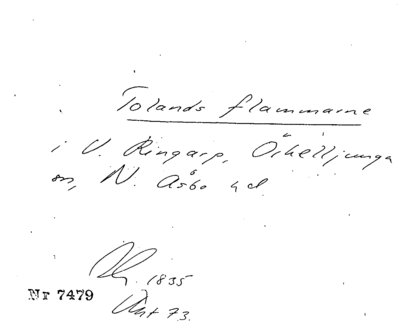 Tolands flammarne
i V. Ringarp, Örkelljunga
sn, N. Åsbo hd.
1835
Nr 7479
73.